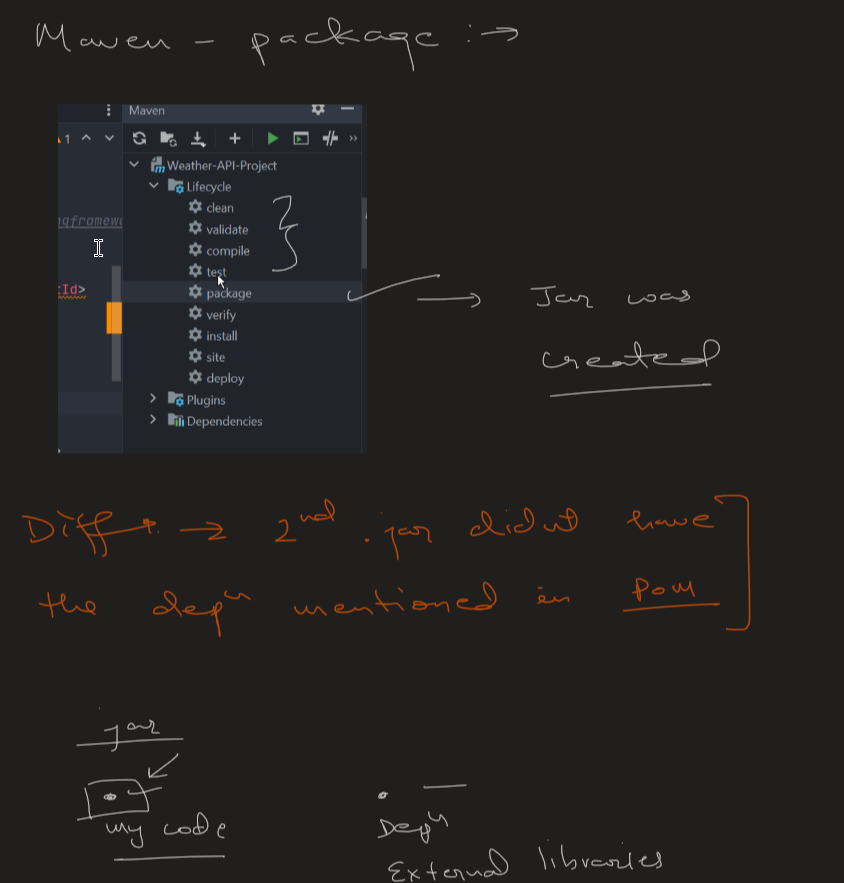 Maven - package :→
Maven
1
Weather-API-Project
Lifecycle
clean
ngframew
validate
compile
test
:Id>
package
verify
install
site
deploy
Plugins
Dependencies
→ Jar was
created
Diff → 2nd .jar didnt have
the depn mentioned in Pom
jar
my code
Depn
External libraries